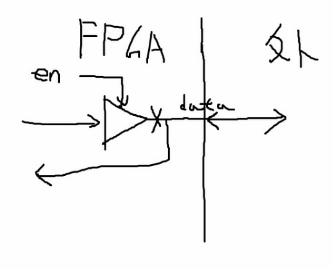 FPGA
外
en
data